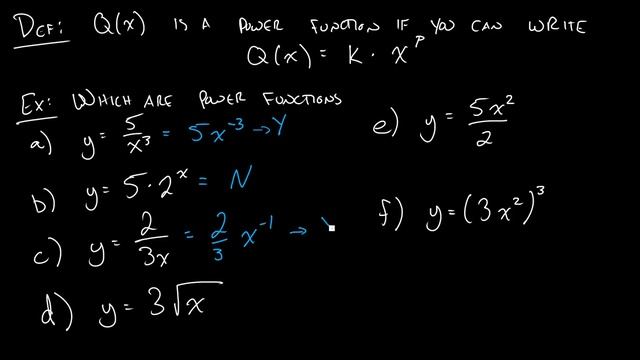 DEF: Q(x) IS A POWER FUNCTION IF YOU CAN WRITE
Q(x) = K · x^p
EX: WHICH ARE POWER FUNCTIONS
a) y = 5/x^3 = 5x^-3 → Y
b) y = 5·2^x = N
c) y = 2/3x = 2/3 x^-1 →
d) y = 3√x
e) y = 5x^2/2
f) y = (3x^2)^3